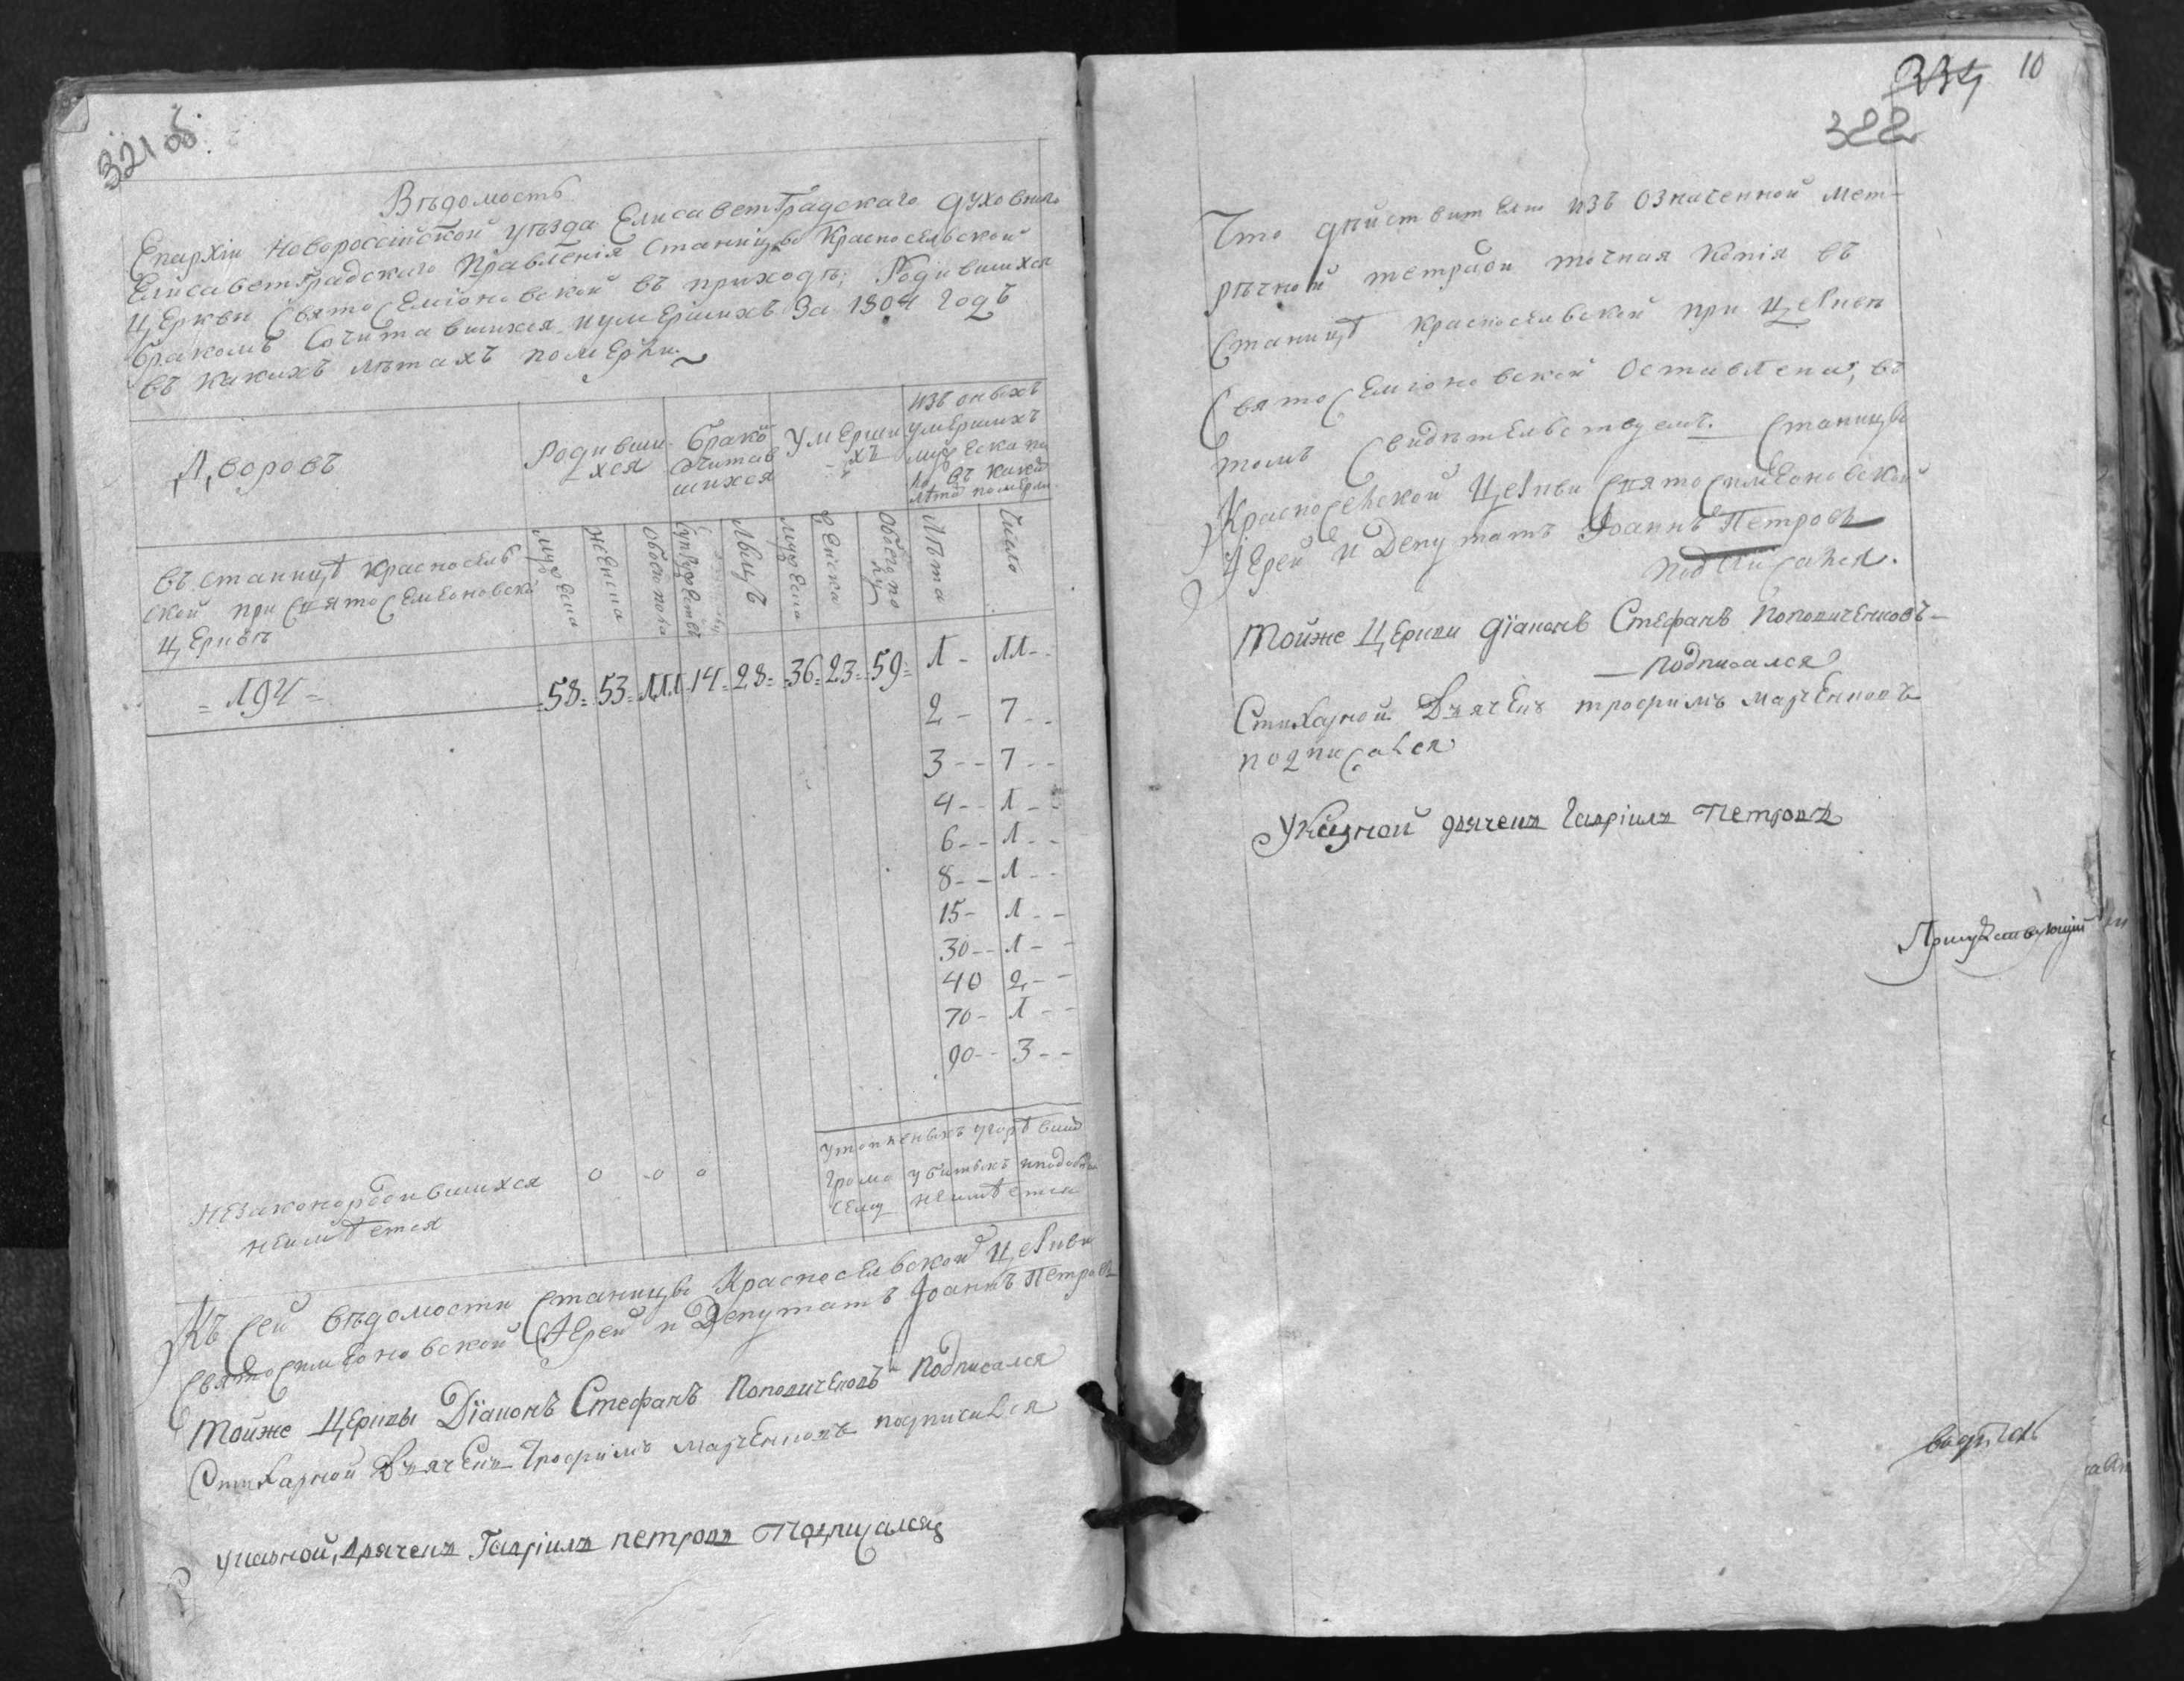 321 об.
Вѣдомость
Епархіи Новороссійской уѣзда Елисаветградскаго духовнаго
Елисаветградскаго Правленія Станицы Красносельской
Церкви СвятоСеміоновской въ приходѣ, Родившихся
бракомъ Сочитавшихся и умершихъ За 1804 Годъ
въ какихъ лѣтахъ померли.
Дворовъ
Родивши
хся
Бракѡ
Сочитав
шихся
Умерши
хъ
изъ оныхъ
умершихъ
въ станицѣ красносель
ской при СвятоСемеоновской
Церквѣ
Мужеска
Женска
Обоего пола
Вдовцѡвъ
Мужеска
Женска
Обоего по
лу
Лѣта
Число
= 194 =
58 = 53 = 111 = 14 = 28 = 36 = 23 = 59 = 1 - 11 - -
2 - 7 - -
3 - - 7 - -
4 - - 1 - -
6 - - 1 - -
8 - - 1 - -
15 - 1 - -
30 - - 1 - -
40 2 - -
70 - 1 - -
90 - - 3 - -
Незаконородившихся
неимѣется
0 0 0
утопленыхъ угорѣвши
громо убитыхъ иподобно
сему неимѣется
Къ Сей вѣдомости Станицы Красносельской Церкви
СвятоСимеоновской Іерей и Депутатъ Іоаннъ Петровъ
Тойже Церквы Діаконъ Стефанъ Поповиченковъ Подписался
Стихарной Дьячекъ Трофимъ Марченковъ подписался
указной дьячекъ Гавріилъ петровъ Подписался
234 10
322
Что дѣйствително изъ Означенной мет-
рѣчной тетради точная Копія въ
Станицѣ Красносельской при Церквѣ
СвятоСеміоновской Оставлена, въ
томъ Свидѣтельствуемъ. Станицы
Красноселской Церкви СвятоСимеоновской
Іерей и Депутатъ Іоаннъ Петровъ
подписался.
Тойже Церкви діаконъ Стефанъ Поповиченковъ -
- Подписался
Стихарной Дьячекъ трофимъ марченковъ
подписался
Указной дьячекъ Гавріилъ Петровъ
Присутствующій